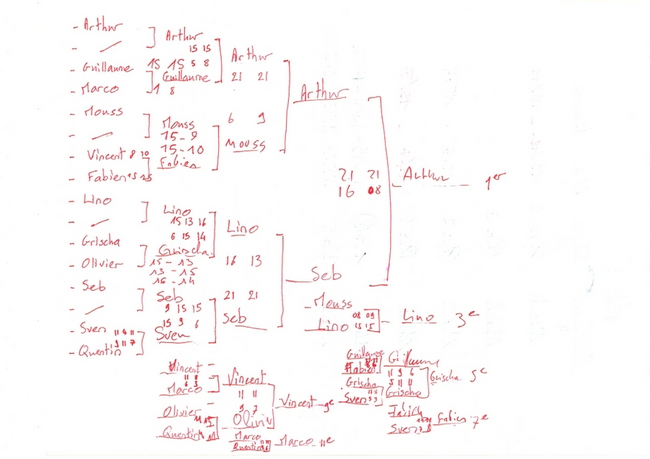 - Arthur
-
- Guillaume 15 15
- Marco 1 8
- Mouss
-
- Vincent 8 10
- Fabien 15 15
- Lino
-
- Grischa
- Olivier
- Seb
-
- Sven
- Quentin
Arthur
15 15
5 8
Guillaume
Mouss
15-9
15-10
Fabien
Lino
15 13 16
6 15 14
Grischa
15-13
13-15
16-14
Seb
9 15 15
15 9 6
Sven
Arthur
21 21
6 9
Mouss
Lino
16 13
21 21
Seb
Arthur
21 21
16 08
Seb
Arthur 1er
Mouss 08 09
Lino 15 15
Lino 3e
Vincent
Marco
Olivier
Quentin
Vincent
11 11
9 7
Olivier
Vincent 9e
Marco
Quentin
Marco 11e
Guillaume
Fabien
Grischa
Sven
Guillaume
11 9 6
Grischa
Grischa 5e
Fabien
Sven
Fabien 7e